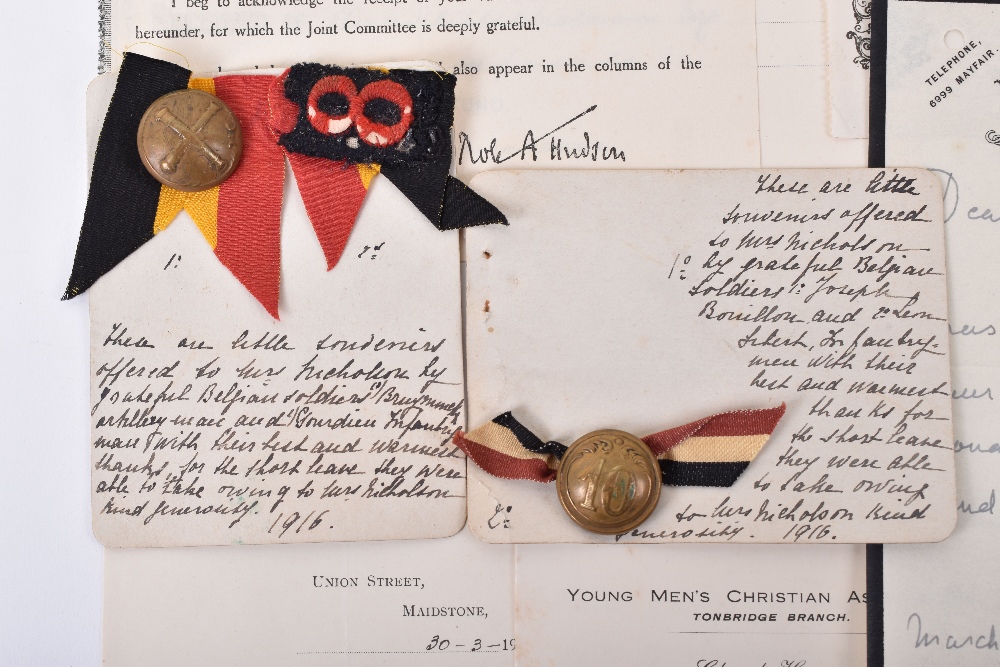 I beg to acknowledge the receipt of your
hereunder, for which the Joint Committee is deeply grateful.
also appear in the columns of the
Hudson
TELEPHONE,
6999 MAYFAIR.
1º
2º
These are little souvenirs
offered to Mrs Nicholson by
grateful Belgian soldiers
artillery man and Gourdieu Infantry
man with their best and warmest
thanks, for the short leave they were
able to take owing to Mrs Nicholson
kind generosity.
1916.
These are little
souvenirs offered
to Mrs Nicholson
1º by grateful Belgian
soldiers 1º Joseph
Bouillon and 2º Léon
Infantry-
men with their
best and warmest
thanks for
the short leave
they were able
to take owing
to Mrs Nicholson kind
generosity. 1916.
2º
10
UNION STREET,
MAIDSTONE,
30-3-19
YOUNG MEN'S CHRISTIAN AS
TONBRIDGE BRANCH.
March